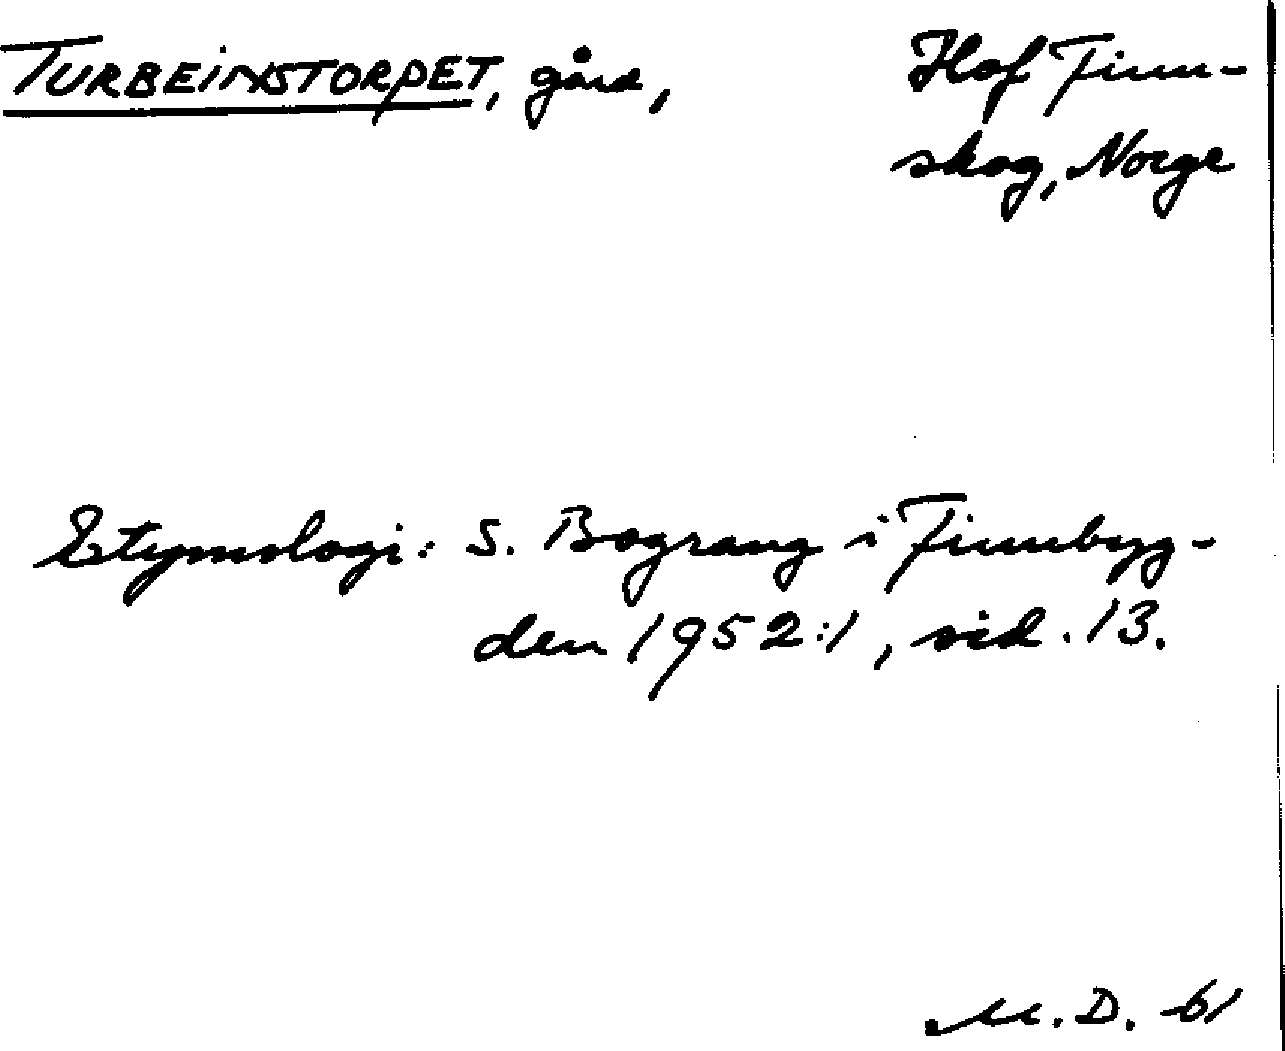 TURBEINSTORPET, gård,
Hof Finn-
skog, Norge
Etymologi: S. Bograng i Finnbyg-
den 1952:1, sid. 13.
M.D. -61